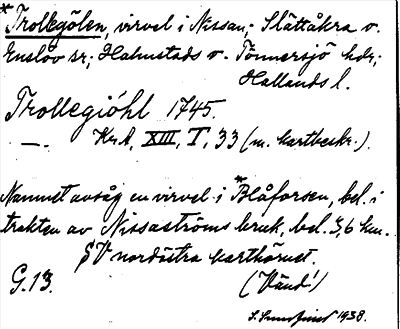 *Trollegölen, virvel i Nissan; Slättåkra o.
Enslöv sr; Halmstads o. Tönnersjö hdr;
Hallands l.
Trollegiöhl 1745.
—. Kr.A. XIII, T, 33 (m. kartbeskr.).
Namnet avsåg en virvel i *Blåforsen, bel. i
trakten av Nissaströms bruk, bel. 3,6 km.
SV nordöstra karthörnet.
G.13. (Vänd!)
1938.